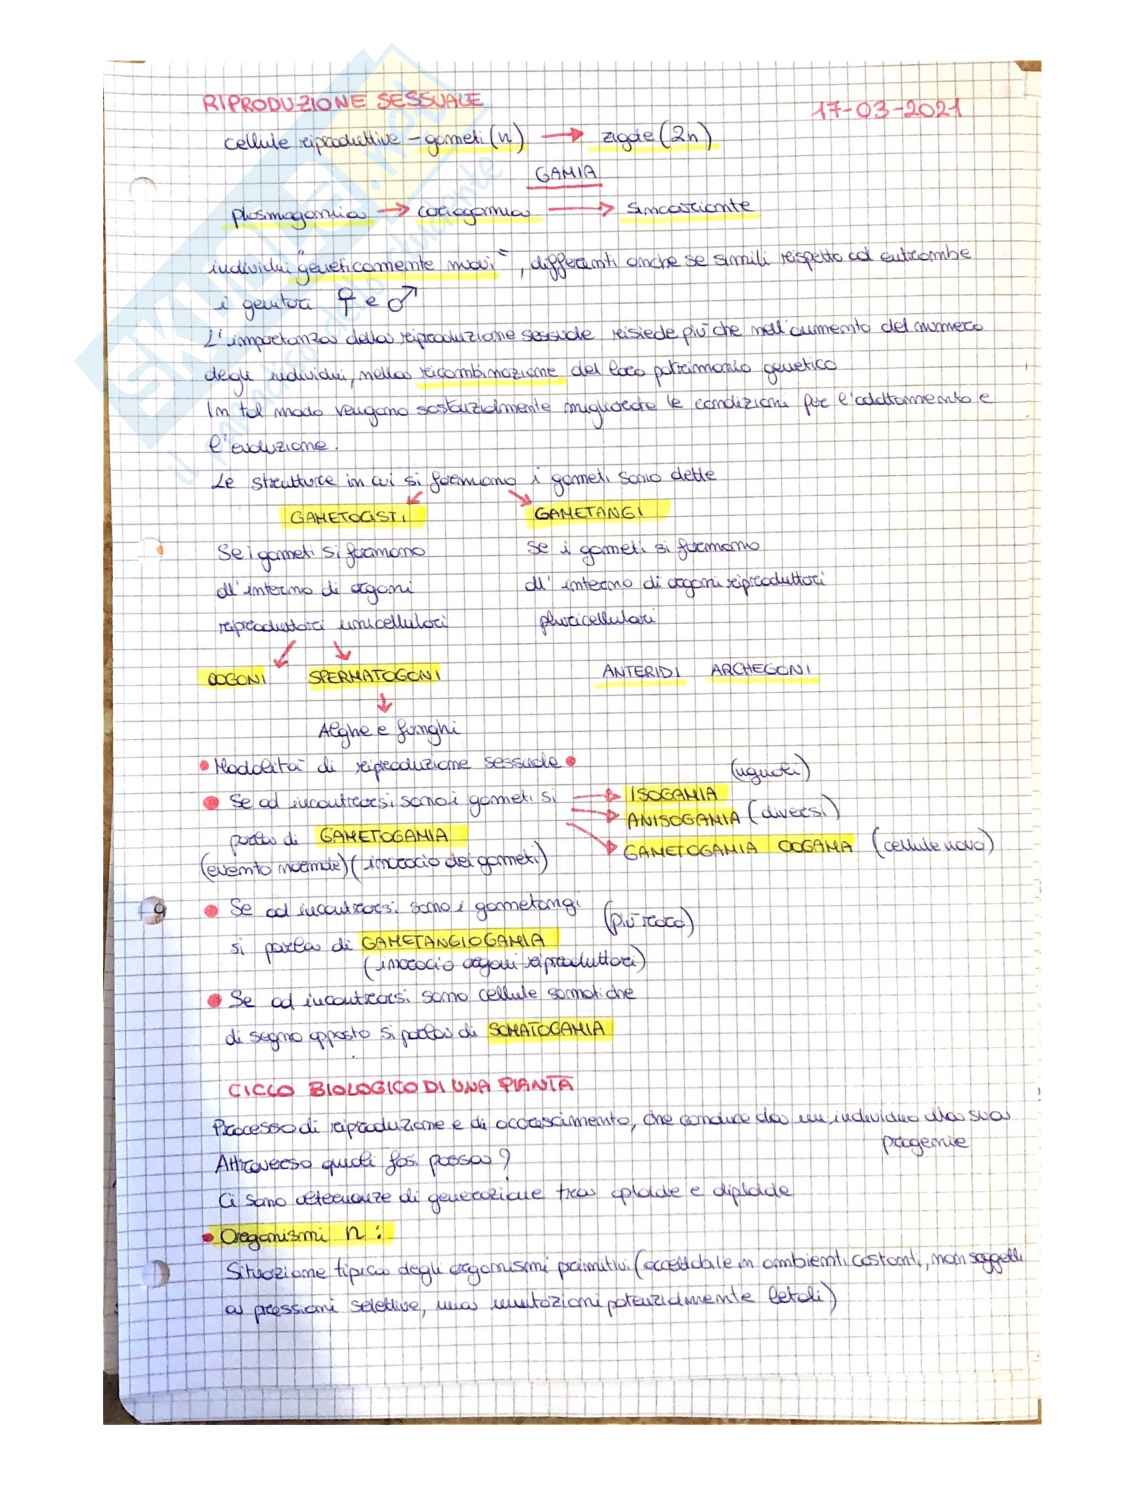 RIPRODUZIONE SESSUALE
17-03-2021
cellule riproduttive - gameti (n) → zigote (2n)
GAMIA
plasmogamia → cariogamia → sincarionte
individui "geneticamente nuovi", differenti anche se simili rispetto ad entrambe
i genitori ♀ e ♂
L'importanza della riproduzione sessuale risiede più che nell'aumento del numero
degli individui, nella ricombinazione del loro patrimonio genetico
In tal modo vengono sostanzialmente migliorate le condizioni per l'adattamento e
l'evoluzione.
Le strutture in cui si formano i gameti sono dette
GAMETOCISTI GAMETANGI
Se i gameti si formano Se i gameti si formano
all'interno di organi all'interno di organi riproduttori
riproduttori unicellulari pluricellulari
OOGONI SPERMATOGONI ANTERIDI ARCHEGONI
Alghe e funghi
• Modalità di riproduzione sessuale •
(uguali)
• Se ad incontrarsi sono i gameti si → ISOGAMIA
→ ANISOGAMIA (diversi)
parla di GAMETOGAMIA
→ GAMETOGAMIA OOGAMA (cellule uovo)
(evento normale) (incrocio dei gameti)
• Se ad incontrarsi sono i gametangi (più raro)
si parla di GAMETANGIOGAMIA
(incrocio organi riproduttori)
• Se ad incontrarsi sono cellule somatiche
di segno opposto si parla di SOMATOGAMIA
CICLO BIOLOGICO DI UNA PIANTA
Processo di riproduzione e di accrescimento, che conduce da un individuo alla sua
progenie
Attraverso quali fasi passa?
Ci sono alternanze di generazione tra aploide e diploide
• Organismi n:
Situazione tipica degli organismi primitivi (accettabile in ambienti costanti, non soggetti
a pressioni selettive, ma mutazioni potenzialmente letali)
SKUOLA.net